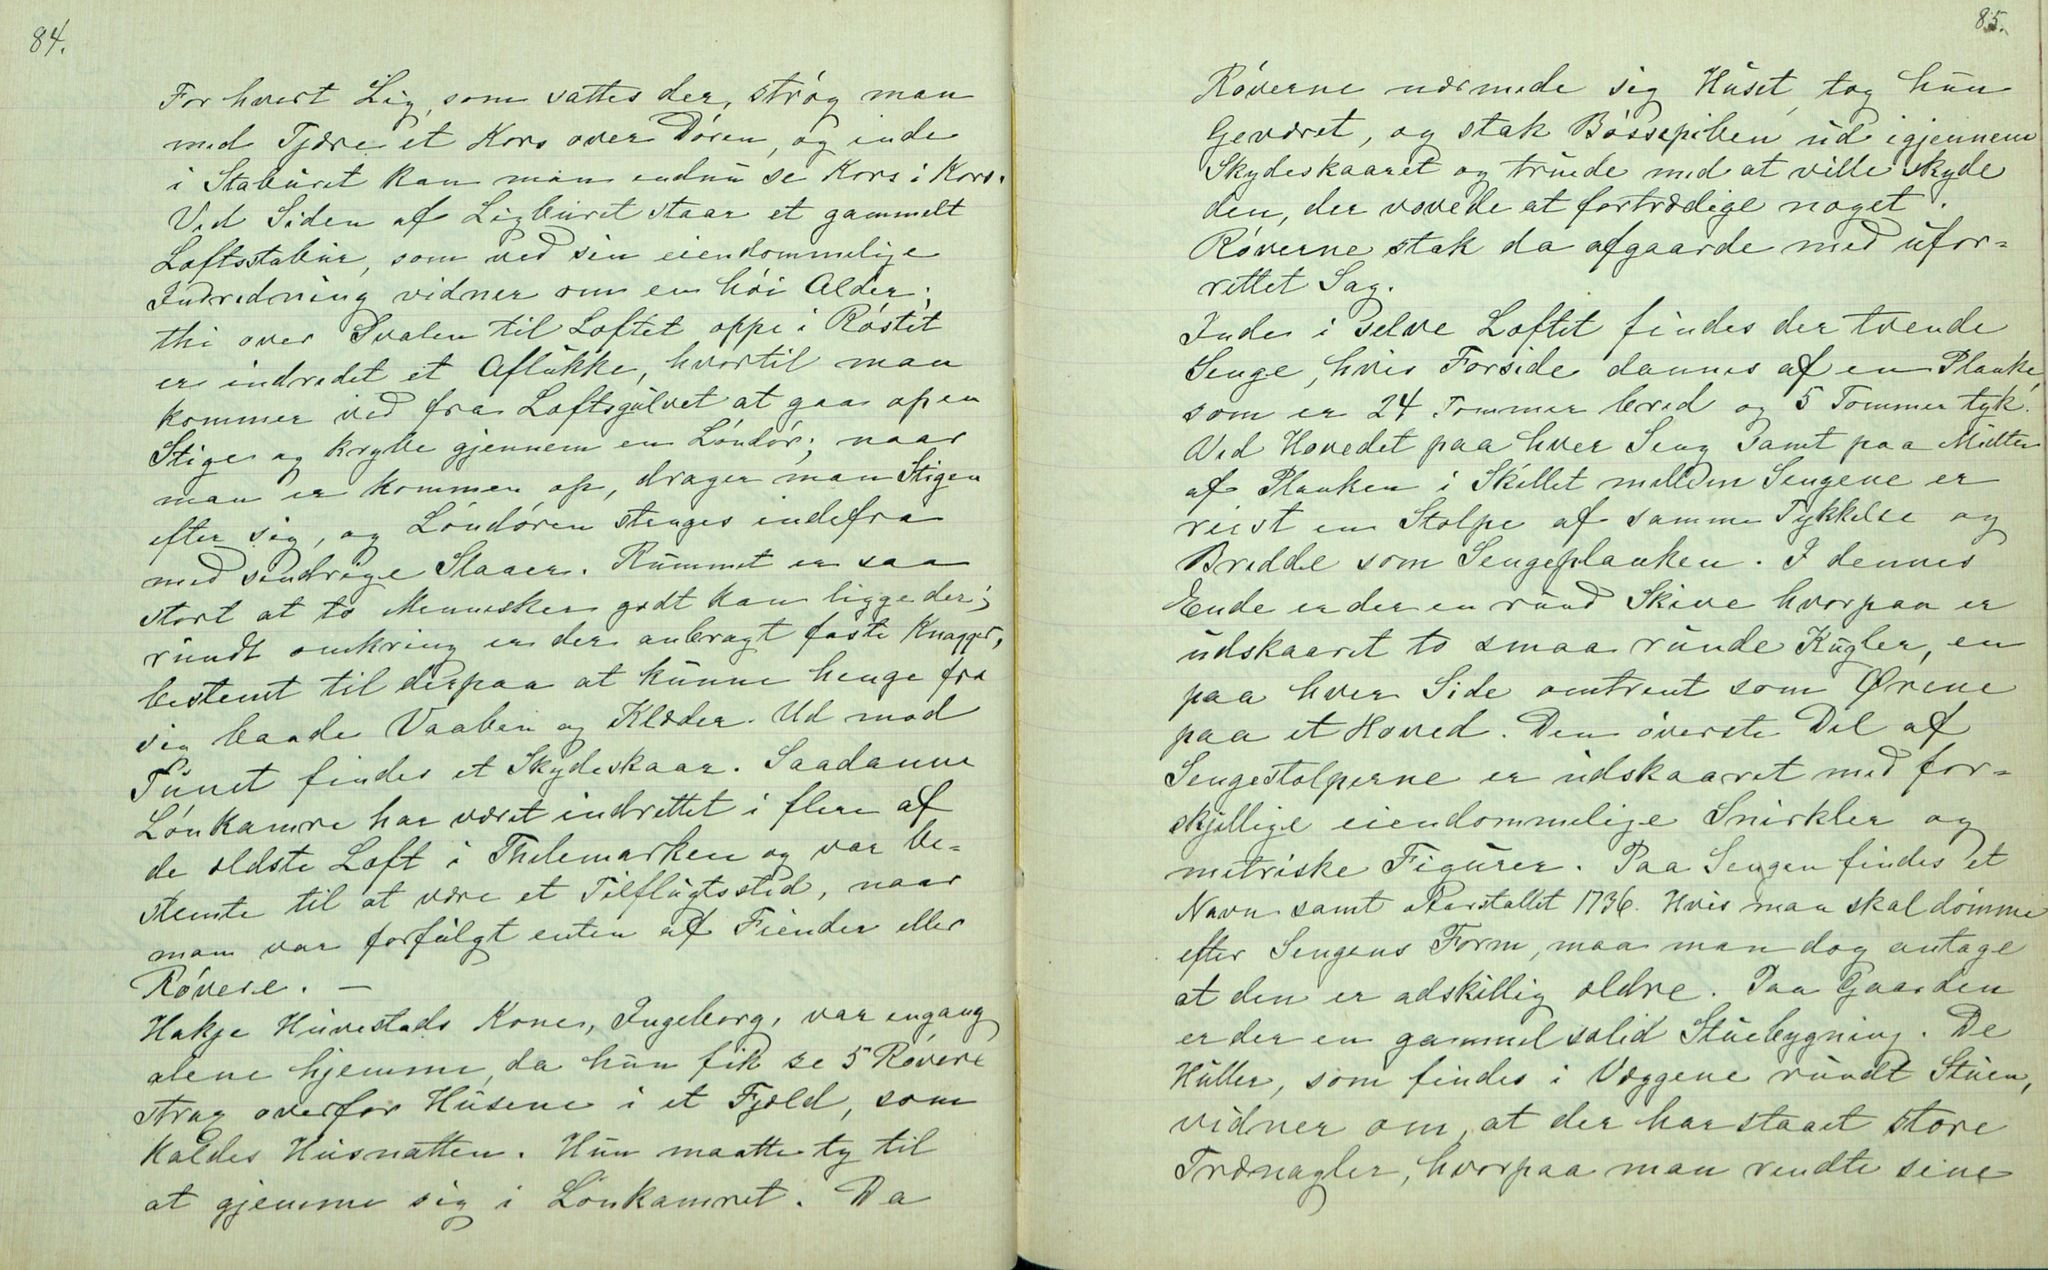 84.
For hvert Lig, som sattes der, strøg man
med Tjære et Kors over Døren, og inde
i Staburet kan man endnu se Kors i Kors.
Ved Siden af Ligburet staar et gammelt
Loftsstabur, som ved sin eiendommelige
Indredning vidner om en høi Alder;
thi over Svalen til Loftet oppe i Røstet
er indredet et Aflukke, hvortil man
kommer ved fra Loftsgulvet at gaa op en
Stige og krybe gjennem en Løndør; naar
man er kommen op, drager man Stigen
efter sig, og Løndøren stenges indefra
med sindrige Slaaer. Rummet er saa
stort at to Mennesker godt kan ligge der;
rundt omkring er der anbragt faste Knagger,
bestemt til derpaa at kunne henge fra
sig baade Vaaben og Klæder. Ud mod
Tunet findes et Skydeskaar. Saadanne
Lønkamre har været indrettet i flere af
de ældste Loft i Thelemarken og var be=
stemte til at være et Tilflugtssted, naar
man var forfulgt enten af Fiender eller
Røvere. —
Hakje Huvestads Kone, Ingeborg, var engang
alene hjemme, da hun fik se 5 Røvere
strax overfor Husene i et Fjeld, som
kaldes Husnatten. Hun maatte ty til
at gjemme sig i Lønkamret. Da
85.
Røverne nærmede sig Huset, tog hun
Geværet, og stak Bøssepiben ud igjennem
Skydeskaaret og truede med at ville skyde
den, der vovede at fortrædige noget.
Røverne stak da afgaarde med ufor=
rettet Sag.
Inde i selve Loftet findes der tvende
Senge, hvis Forside dannes af en Planke,
som er 24 Tommer bred og 5 Tommer tyk.
Ved Hovedet paa hver Seng samt paa Midten
af Planken i Skillet mellem Sengene er
reist en Stolpe af samme Tykkelse og
Bredde som Sengeplanken. I dennes
Ende er der en rund Skive hvorpaa er
udskaaret to smaa runde Kugler, en
paa hver Side omtrent som Ørene
paa et Hoved. Den øverste Del af
Sengestolperne er udskaaret med for=
skjellige eiendommelige Snirkler og
metriske Figurer. Paa Sengen findes et
Navn samt Aarstallet 1736. Hvis man skal dømme
efter Sengens Form, maa man dog antage
at den er adskillig ældre. Paa Gaarden
er der en gammel solid Stuebygning. De
Huller, som findes i Væggene rundt Stuen,
vidner om, at der har staaet store
Trænagler, hvorpaa man rendte sine